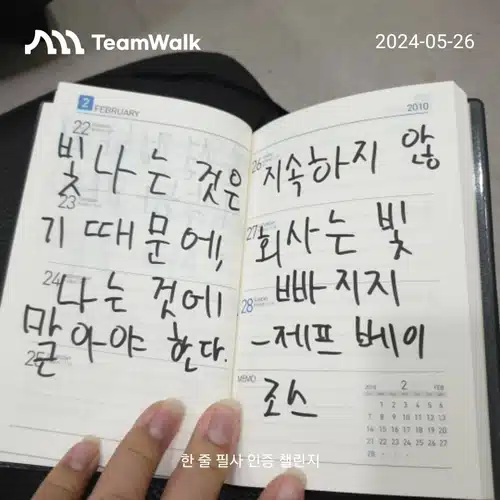 TeamWalk 2024-05-26
2 FEBRUARY 2010
22 26
빛나는 것은 지속하지 않
23 27
기 때문에, 회사는 빛
24 28
나는 것에 빠지지
말아야 한다. -제프 베이
25 MEMO
조스
2010 2 FEB
1 2 3 4 5 6
7 8 9 10 11 12 13
14 15 16 17 18 19 20
21 22 23 24 25 26 27
28
한 줄 필사 인증 챌린지